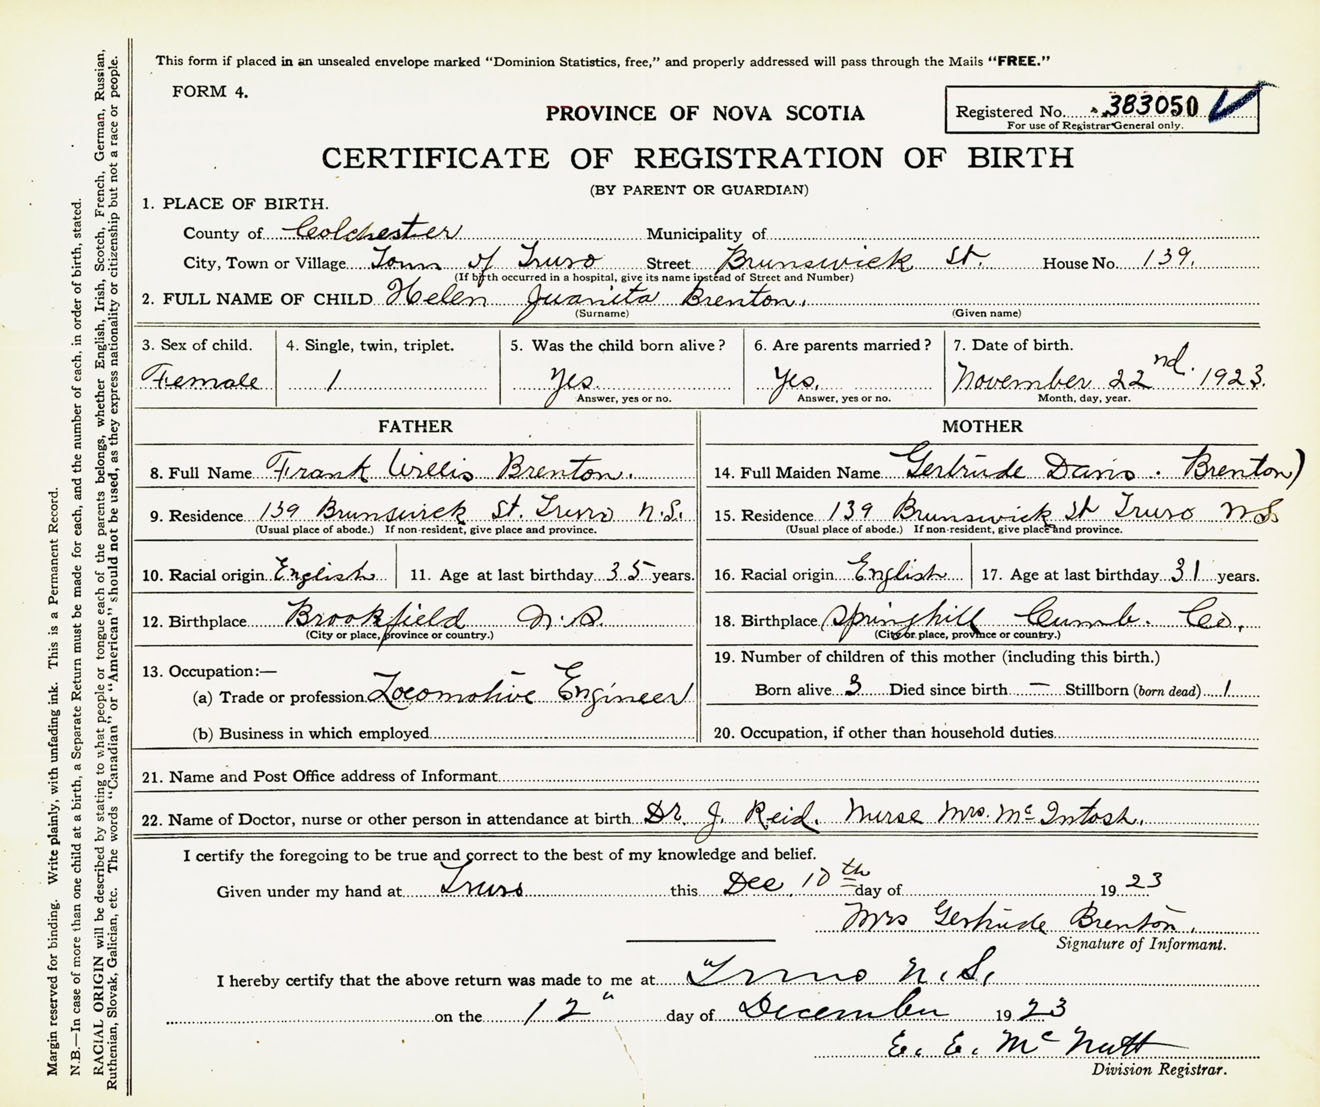 This form if placed in an unsealed envelope marked "Dominion Statistics, free," and properly addressed will pass through the Mails "FREE."
FORM 4.
PROVINCE OF NOVA SCOTIA
Registered No. 383050
For use of Registrar General only.
CERTIFICATE OF REGISTRATION OF BIRTH
(BY PARENT OR GUARDIAN)
1. PLACE OF BIRTH.
County of Colchester Municipality of
City, Town or Village Town of Truro Street Brunswick St. House No. 139.
(If birth occurred in a hospital, give its name instead of Street and Number)
2. FULL NAME OF CHILD Helen Juanita Brenton.
(Surname) (Given name)
3. Sex of child. 4. Single, twin, triplet. 5. Was the child born alive? 6. Are parents married? 7. Date of birth.
Female 1 Yes. Yes. November 22nd. 1923.
Answer, yes or no. Answer, yes or no. Month, day, year.
FATHER MOTHER
8. Full Name Frank Willis Brenton. 14. Full Maiden Name Gertrude Davis. Brenton)
9. Residence 139 Brunswick St. Truro N.S. 15. Residence 139 Brunswick St Truro N.S
(Usual place of abode.) If non-resident, give place and province. (Usual place of abode.) If non-resident, give place and province.
10. Racial origin English 11. Age at last birthday 35 years. 16. Racial origin English 17. Age at last birthday 31 years.
12. Birthplace Brookfield N.S. 18. Birthplace Springhill Cumb. Co.
(City or place, province or country.) (City or place, province or country.)
13. Occupation:— 19. Number of children of this mother (including this birth.)
(a) Trade or profession Locomotive Engineer Born alive 3 Died since birth — Stillborn (born dead) 1
(b) Business in which employed 20. Occupation, if other than household duties
21. Name and Post Office address of Informant
22. Name of Doctor, nurse or other person in attendance at birth Dr. J. Reid. Nurse Mrs. McIntosh.
I certify the foregoing to be true and correct to the best of my knowledge and belief.
Given under my hand at Truro this Dec. 10th day of 1923
Mrs Gertrude Brenton.
Signature of Informant.
I hereby certify that the above return was made to me at Truro N.S.
on the 12" day of December 1923
E. E. McNutt
Division Registrar.
Margin reserved for binding. Write plainly, with unfading ink. This is a Permanent Record.
N.B.—In case of more than one child at a birth, a Separate Return must be made for each, and the number of each, in order of birth, stated.
RACIAL ORIGIN will be described by stating to what people or tongue each of the parents belongs, whether English, Irish, Scotch, French, German, Russian,
Ruthenian, Slovak, Galician, etc. The words "Canadian" or "American" should not be used, as they express nationality or citizenship but not a race or people.